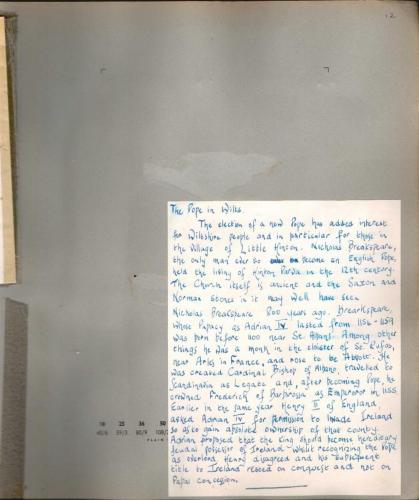 12
The Pope in Wilts.
The election of a new Pope has added interest
for Wiltshire people and in particular for those in
the village of Little Hinton. Nicholas Breakspeare,
the only man ever so become an English Pope,
held the living of Hinton Parva in the 12th century.
The Church itself is ancient and the Saxon and
Norman stones in it may well have seen
Nicholas Breakspeare 800 years ago. Breakspeare,
whose Papacy as Adrian IV lasted from 1154-1159
was born before 1100 near St. Albans. Among other
things he was a monk in the cloister of St. Rufus,
near Arles in France, and rose to be Abbot. He
was created Cardinal Bishop of Albano, travelled to
Scandinavia as Legate and, after becoming Pope, he
crowned Frederick of Barbrossa as Emperor in 1155.
Earlier in the same year Henry II of England
asked Adrian IV for permission to invade Ireland
so as to gain absolute ownership of that country.
Adrian proposed that the King should become hereditary
feudal possessor of Ireland whilst recognizing the Pope
as overlord. Henry disagreed and his subsequent
title to Ireland rested on conquest and not on
Papal concession.
18 25 36 50